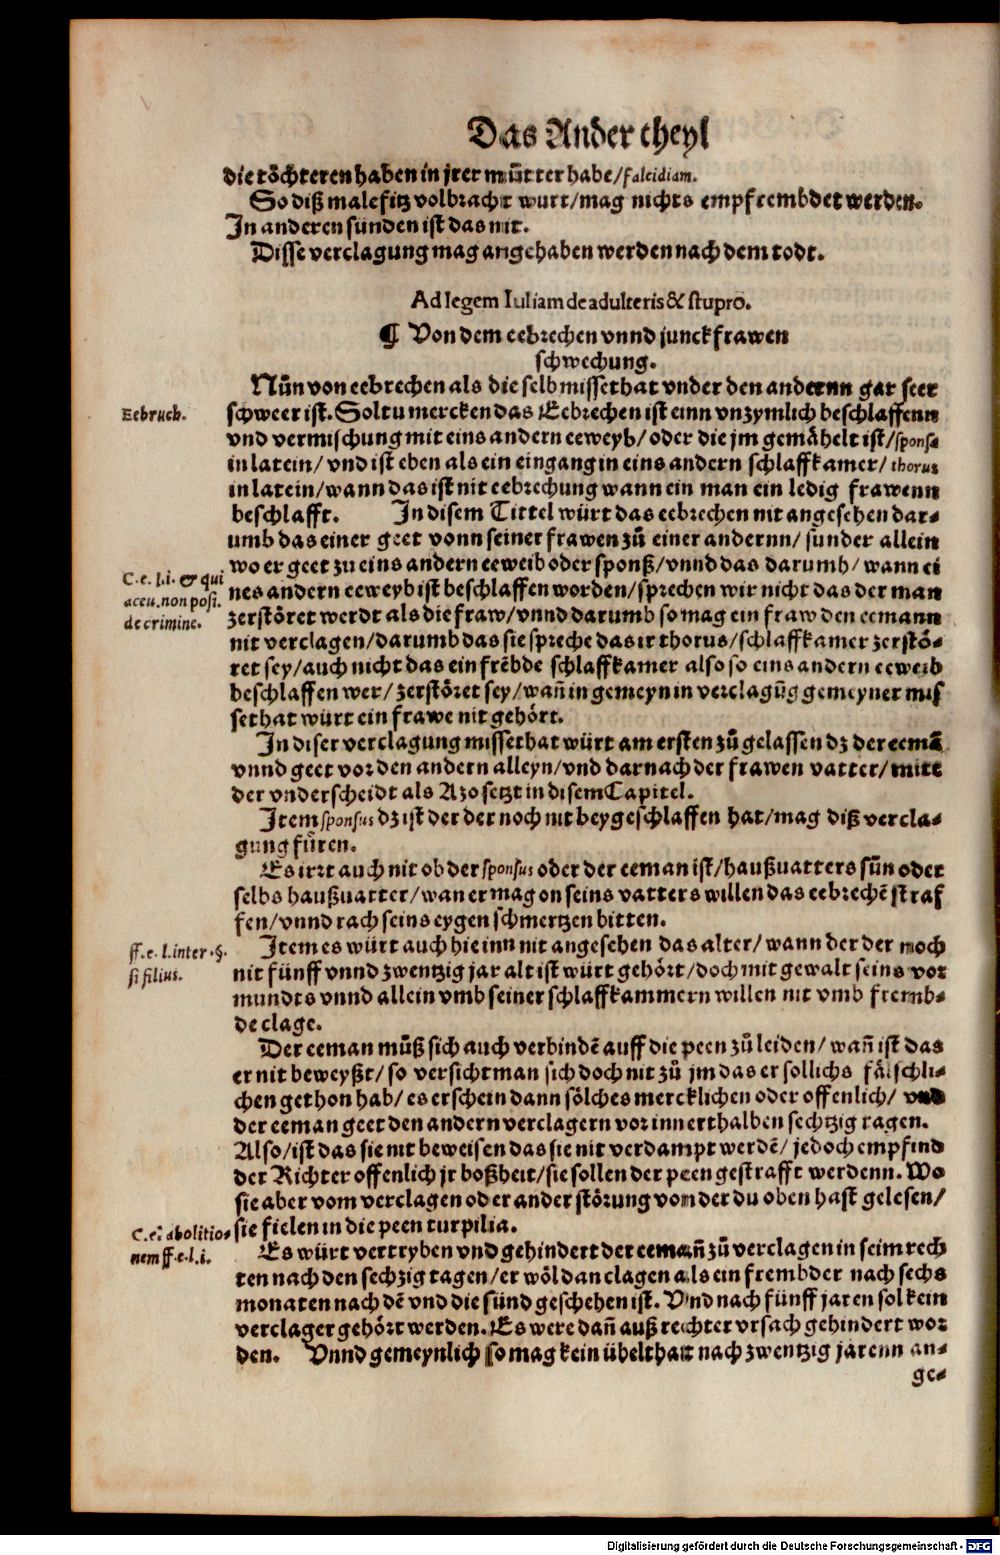 Das Ander theyl
die töchteren haben in jrer mütter habe/falcidiam.
So diß malefitz volbracht wurt/mag nichts empfrembdet werden.
In anderen sünden ist das nit.
Disse verclagung mag angehaben werden nach dem todt.
Ad legem Iuliam de adulteris & stupro.
¶ Von dem eebrechen vnnd junckfrawen
schwechung.
Nůn von eebrechen als die selb missethat vnder den andernn gar seer
Eebruch.
schweer ist. Soltu mercken das Eebrechen ist einn vnzymlich beschlaffenn
vnd vermischung mit eins andern eeweyb/oder die jm gemähelt ist/sponsa
in latein/vnd ist eben als ein eingang in eins andern schlaffkamer/thorus
in latein/wann das ist nit eebrechung wann ein man ein ledig frawenn
beschlafft. In disem Tittel würt das eebrechen nit angesehen dar⸗
umb das einer geet vonn seiner frawen zů einer andernn/sunder allein
wo er geet zu eins andern eeweib oder sponß/vnnd das darumb/wann ei
C.e. l.i. & qui
accu. non poss.
de crimine.
nes andern eeweyb ist beschlaffen worden/sprechen wir nicht das der man
zerstöret werdt als die fraw/vnnd darumb so mag ein fraw den eemann
nit verclagen/darumb das sie spreche das ir thorus/schlaffkamer zerstö⸗
ret sey/auch nicht das ein frēbde schlaffkamer also so eins andern eeweib
beschlaffen wer/zerstöret sey/wañ in gemeyn in verclagūg gemeyner mis
sethat würt ein frawe nit gehört.
In diser verclagung missethat würt am ersten zů gelassen dz der eemā
vnnd geet vor den andern alleyn/vnd darnach der frawen vatter/mitt
der vnderscheidt als Azo setzt in disem Capitel.
Item sponsus dz ist der der noch nit beygeschlaffen hat/mag diß vercla⸗
gung füren.
Es irrt auch nit ob der sponsus oder der eeman ist/haußuatters sůn oder
selbs haußuatter/wan er mag on seins vatters willen das eebrechē straf
fen/vnnd rach seins eygen schmertzen bitten.
ff.e. l. inter. §.
si filius.
Item es würt auch hie inn nit angesehen das alter/wann der der noch
nit fünff vnnd zwentzig jar alt ist würt gehört/doch mit gewalt seins vor
mundts vnnd allein vmb seiner schlaffkammern willen nit vmb fremb⸗
de clage.
Der eeman můß sich auch verbindē auff die peen zů leiden/wañ ist das
er nit beweyßt/so versicht man sich doch nit zů jm das er sollichs fälschli⸗
chen gethon hab/es erschein dann sölches mercklichen oder offenlich/vnd
der eeman geet den andern verclagern vor innerthalben sechtzig tagen.
Also/ist das sie nit beweisen das sie nit verdampt werdē/jedoch empfind
der Richter offenlich jr boßheit/sie sollen der peen gestrafft werdenn. Wo
sie aber vom verclagen oder ander störung von der du oben hast gelesen/
sie fielen in die peen turpilia.
C.e. abolitio⸗
nem ff.e.l.i.
Es würt vertryben vnd gehindert der eemañ zů verclagen in seim rech
ten nach den sechzig tagen/er wöl dan clagen als ein frembder nach sechs
monaten nach dē vnd die sünd geschehen ist. Vnd nach fünff jaren sol kein
verclager gehört werden. Es were dañ auß rechter vrsach gehindert wor
den. Vnnd gemeynlich so mag kein übelthatt nach zwentzig jarenn an⸗
ge⸗
Digitalisierung gefördert durch die Deutsche Forschungsgemeinschaft - DFG